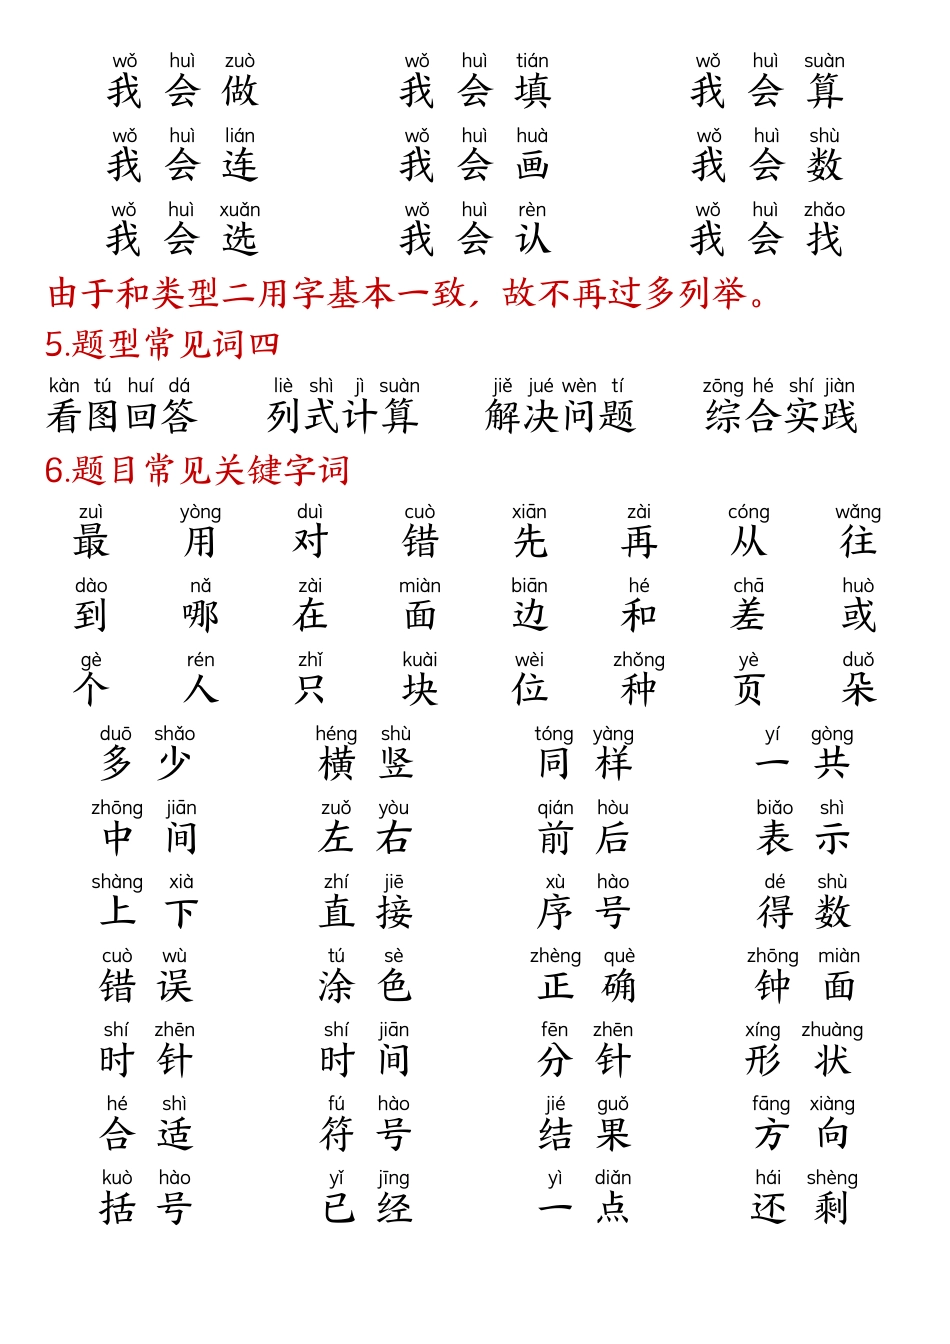 wǒ huì zuò wǒ huì tián wǒ huì suàn
我会做 我会填 我会算
wǒ huì lián wǒ huì huà wǒ huì shù
我会连 我会画 我会数
wǒ huì xuǎn wǒ huì rèn wǒ huì zhǎo
我会选 我会认 我会找
由于和类型二用字基本一致，故不再过多列举。
5.题型常见词四
kàn tú huí dá liè shì jì suàn jiě jué wèn tí zōng hé shí jiàn
看图回答 列式计算 解决问题 综合实践
6.题目常见关键字词
zuì yòng duì cuò xiān zài cóng wǎng
最 用 对 错 先 再 从 往
dào nǎ zài miàn biān hé chā huò
到 哪 在 面 边 和 差 或
gè rén zhǐ kuài wèi zhǒng yè duǒ
个 人 只 块 位 种 页 朵
duō shǎo héng shù tóng yàng yí gòng
多少 横竖 同样 一共
zhōng jiān zuǒ yòu qián hòu biǎo shì
中间 左右 前后 表示
shàng xià zhí jiē xù hào dé shù
上下 直接 序号 得数
cuò wù tú sè zhèng què zhōng miàn
错误 涂色 正确 钟面
shí zhēn shí jiān fēn zhēn xíng zhuàng
时针 时间 分针 形状
hé shì fú hào jié guǒ fāng xiàng
合适 符号 结果 方向
kuò hào yǐ jīng yì diǎn hái shèng
括号 已经 一点 还剩